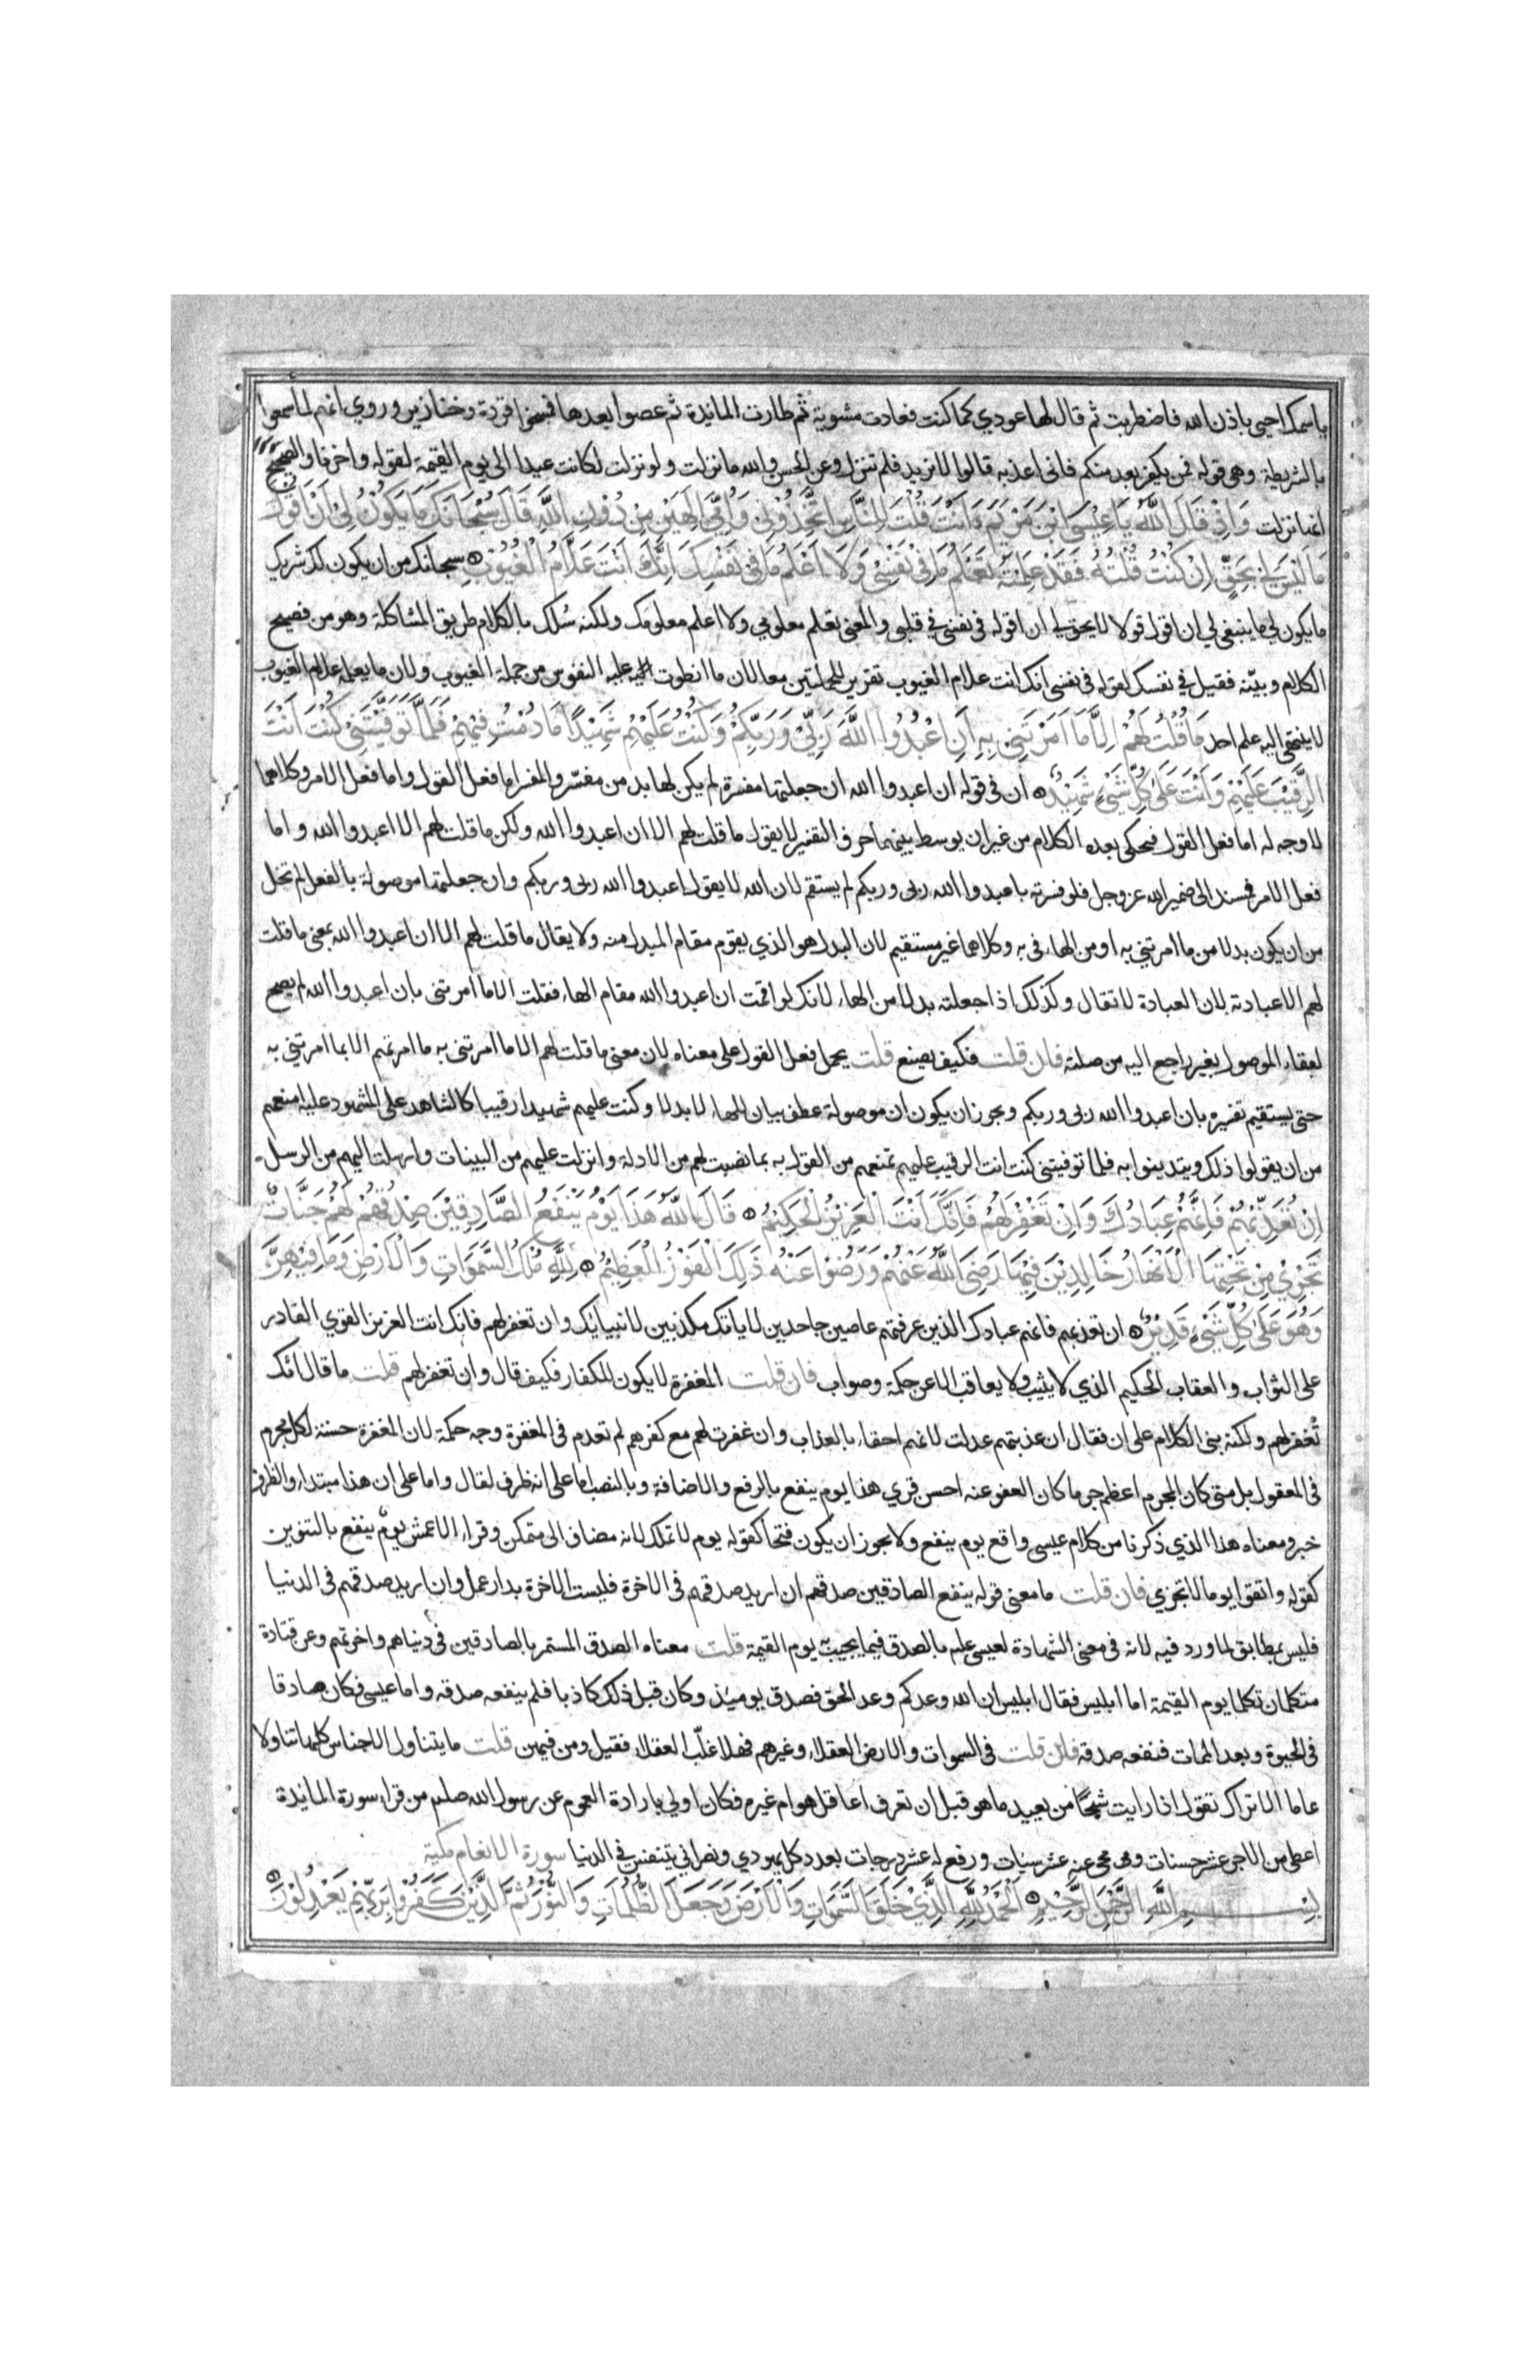 ياسمك احيى باذن الله فاضطربت ثم قال لها عودي كما كنت فعادت مشوية ثم طارت المائدة ثم عصوا بعدها فمسخوا قردة وخنازير وروي انهم لما سمعوا
بالشريطة وهي قوله فمن يكفر بعد منكم فاني اعذبه قالوا لا نريد فلم تنزل وعن الحسن والله ما نزلت ولو نزلت لكانت عيدا الى يوم القيمة لقوله واخرنا والصحيح
انها نزلت وَاِذْ قَالَ اللَّهُ يَا عِيْسَى ابْنَ مَرْيَمَ ءَاَنْتَ قُلْتَ لِلنَّاسِ اتَّخِذُوْنِي وَاُمِّيَ اِلٰهَيْنِ مِنْ دُوْنِ اللَّهِ قَالَ سُبْحَانَكَ مَا يَكُوْنُ لِيْ اَنْ اَقُوْلَ
مَا لَيْسَ لِيْ بِحَقٍّ اِنْ كُنْتُ قُلْتُهُ فَقَدْ عَلِمْتَهُ تَعْلَمُ مَا فِيْ نَفْسِيْ وَلَا اَعْلَمُ مَا فِيْ نَفْسِكَ اِنَّكَ اَنْتَ عَلَّامُ الْغُيُوْبِ سبحانك من ان يكون لك شريك
ما يكون لي ما ينبغي لي ان اقول قولا لا يحق لي ان اقوله في نفسي في قلبي والمعنى تعلم معلومي ولا اعلم معلومك ولكنه سُلك بالكلام طريق المشاكلة وهو من فصيح
الكلام وبيّنه فقيل في نفسك لقوله في نفسي انك انت علام الغيوب تقرير للجملتين معا لان ما انطوت عليه النفوس من جملة الغيوب ولان ما يعلمه علام الغيوب
لا ينتهي اليه علم احد مَا قُلْتُ لَهُمْ اِلَّا مَا اَمَرْتَنِيْ بِهِ اَنِ اعْبُدُوا اللَّهَ رَبِّيْ وَرَبَّكُمْ وَكُنْتُ عَلَيْهِمْ شَهِيْدًا مَا دُمْتُ فِيْهِمْ فَلَمَّا تَوَفَّيْتَنِيْ كُنْتَ اَنْتَ
الرَّقِيْبَ عَلَيْهِمْ وَاَنْتَ عَلٰى كُلِّ شَيْءٍ شَهِيْدٌ ان في قوله ان اعبدوا الله ان جعلتها مفسرة لم يكن لها بد من مفسّر والمفسر اما فعل القول واما فعل الامر وكلاهما
لا وجه له اما فعل القول فيحكى بعده الكلام من غير ان يوسط بينهما حرف التفسير لا يقول ما قلت لهم الا ان اعبدوا الله ولكن ما قلت لهم الا اعبدوا الله واما
فعل الامر فمسند الى ضمير الله عز وجل فلو فسرته باعبدوا الله ربى وربكم لم يستقم لان الله لا يقول اعبدوا الله ربى وربكم وان جعلتها موصولة بالفعل لم تخل
من ان يكون بدلا من ما امرتني به او من الهاء في به وكلاهما غير مستقيم لان البدل هو الذي يقوم مقام المبدل منه ولا يقال ما قلت لهم الا ان اعبدوا الله بمعنى ما قلت
لهم الا عبادته لان العبادة لا تقال وكذلك اذا جعلته بدلا من الهاء لانك لو اقمت ان اعبدوا الله مقام الهاء فقلت الا ما امرتني بان اعبدوا الله لم يصح
لبقاء الموصول بغير راجع اليه من صلته فان قلت فكيف يصنع قلت يحمل فعل القول على معناه لان معنى ما قلت لهم الا ما امرتنى به ما امرتهم الا بما امرتني به
حتى يستقيم تفسيره بان اعبدوا الله ربى وربكم ويجوز ان يكون ان موصولة عطف بيان للهاء لا بدلا وكنت عليهم شهيدا رقيبا كالشاهد على المشهود عليه امنعهم
من ان يقولوا ذلك ويتدينوا به فلما توفيتنى كنت انت الرقيب عليهم تمنعهم من القول به بما نصبت لهم من الادلة وانزلت عليهم من البينات وارسلت اليهم من الرسل
اِنْ تُعَذِّبْهُمْ فَاِنَّهُمْ عِبَادُكَ وَاِنْ تَغْفِرْ لَهُمْ فَاِنَّكَ اَنْتَ الْعَزِيْزُ الْحَكِيْمُ قَالَ اللَّهُ هٰذَا يَوْمُ يَنْفَعُ الصَّادِقِيْنَ صِدْقُهُمْ لَهُمْ جَنَّاتٌ
تَجْرِيْ مِنْ تَحْتِهَا الْاَنْهَارُ خَالِدِيْنَ فِيْهَا رَضِيَ اللَّهُ عَنْهُمْ وَرَضُوْا عَنْهُ ذٰلِكَ الْفَوْزُ الْعَظِيْمُ لِلَّهِ مُلْكُ السَّمٰوَاتِ وَالْاَرْضِ وَمَا فِيْهِنَّ
وَهُوَ عَلٰى كُلِّ شَيْءٍ قَدِيْرٌ ان تعذبهم فانهم عبادك الذين عرفتهم عاصين جاحدين لاياتك مكذبين لانبيائك وان تغفر لهم فانك انت العزيز القوي القادر
على الثواب والعقاب الحكيم الذي لا يثيب ولا يعاقب الا عن حكمة وصواب فان قلت المغفرة لا يكون للكفار فكيف قال وان تغفر لهم قلت ما قال انك
تُغفر لهم ولكنه بنى الكلام على ان فقال ان عذبتهم عدلت لانهم احقاء بالعذاب وان غفرت لهم مع كفرهم لم تعدم في المغفرة وجه حكمة لان المغفرة حسنة لكل مجرم
في المعقول بل متى كان المجرم اعظم جرما كان العفو عنه احسن قري هذا يوم ينفع بالرفع والاضافة وبالنصب اما على انه ظرف لقال واما على ان هذا مبتداء والظرف
خبر ومعناه هذا الذي ذكرنا من كلام عيسى واقع يوم ينفع ولا يجوز ان يكون فتحا كقوله يوم لا تملك لانه مضاف الى متمكن وقراء الاعمش يومٌ ينفع بالتنوين
كقوله واتقوا يوما لا تجزي فان قلت ما معنى قوله ينفع الصادقين صدقهم ان اريد صدقهم في الاخرة فليست الاخرة بدار عمل وان اريد صدقهم في الدنيا
فليس بمطابق لما ورد فيه لانه في معنى الشهادة لعيسى عليه بالصدق فيما يجيب به يوم القيمة قلت معناه الصدق المستمر بالصادقين في دنياهم واخرتهم وعن قتادة
متكلمان تكلما يوم القيمة اما ابليس فقال ابليس ان الله وعدكم وعد الحق فصدق يومئذ وكان قبل ذلك كاذبا فلم ينفعه صدقه واما عيسى فكان صادقا
في الحيوة وبعد الممات فنفعه صدقه فان قلت في السموات والارض العقلاء وغيرهم فهلا غلّب العقلاء فقيل ومن فيهن قلت ما يتناول الاجناس كلها تناولا
عاما الا تراك تقول اذا رايت شبحًا من بعيد ما هو قبل ان تعرف اعاقل هو ام غيره فكان اولي بارادة العموم عن رسول الله صلم من قراء سورة المائدة
اعطي من الاجر عشر حسنات ومحى عنه عشر سيات ورفع له عشر درجات بعدد كل يهودي ونصراني يتنفس في الدنيا سورة الانعام مكية
بِسْمِ اللَّهِ الرَّحْمٰنِ الرَّحِيْمِ اَلْحَمْدُ لِلَّهِ الَّذِيْ خَلَقَ السَّمٰوَاتِ وَالْاَرْضَ وَجَعَلَ الظُّلُمَاتِ وَالنُّوْرَ ثُمَّ الَّذِيْنَ كَفَرُوْا بِرَبِّهِمْ يَعْدِلُوْنَ